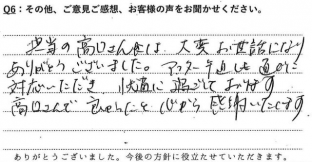 Q6：その他、ご意見ご感想、お客様の声をお聞かせください。
担当の高口さんには、大変お世話になり
ありがとうございました。アフター手直しも直ぐに
対応いただき 快適に過ごしております
高口さんで良かったと心から感謝いたします
ありがとうございました。今後の方針に役立たせていただきます。